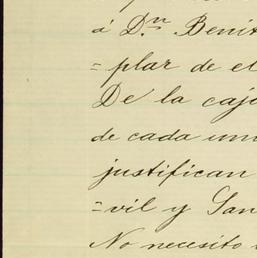 á D.n Benit
=plar de el
De la caj
de cada un
justifican
=vil y San
No necesito